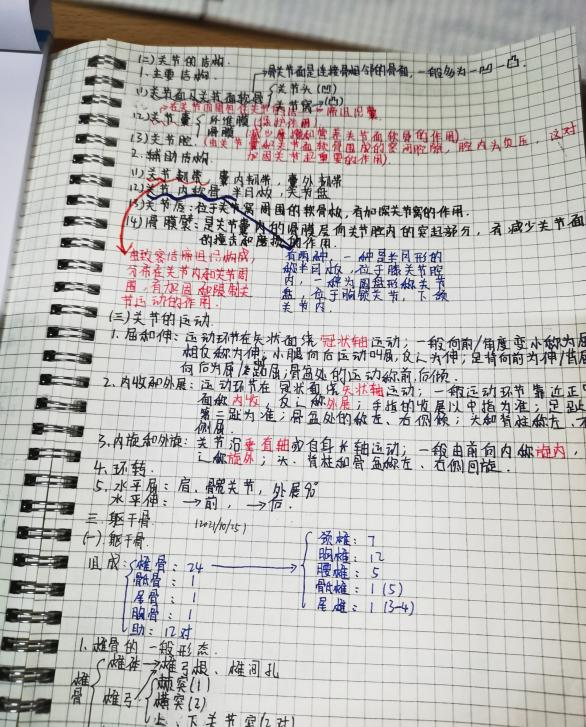 (二)关节的结构.
1.主要结构. →骨关节面是连接骨相邻的骨面,一般多为一凹一凸.
(1)关节面及关节面软骨{关节头(凹)
关节窝(凸)
(2)关节囊{纤维膜(保护作用).
滑膜(减少摩擦和营养关节面软骨的作用).
(3)关节腔.(由关节囊和关节面软骨围成的空间腔隙,腔内为负压,这对
加固关节起重要的作用).
2.辅助结构.
(1)关节韧带 囊内韧带,囊外韧带
(2)关节内软骨 半月板,关节盘
(3)关节唇:位于关节窝周围的软骨板,有加深关节窝的作用.
(4)滑膜襞:是关节囊内的滑膜层向关节腔内的突起部分,有减少关节面
的撞击和磨损的作用.
由致密结缔组织构成,
分布在关节内和关节周
围,有加固和限制关
节运动的作用.
有两种,一种是半月形的
称半月板,位于膝关节腔
内,一种为圆盘形称关节
盘,位于胸锁关节,下颌
关节内.
(三)关节的运动.
1.屈和伸:运动环节在矢状面绕冠状轴运动;一般向前/角度变小称为屈
相反称为伸;小腿向后运动叫屈,反之为伸;足背向前为伸/背屈
向后为屈/跖屈;骨盆处的运动称前,后倾.
2.内收和外展:运动环节在冠状面绕矢状轴运动;一般运动环节靠近正中
面称内收,反之称外展;手指的收展以中指为准;足趾
第二趾为准;骨盆处的称左、右侧倾;头和脊柱称左、右
侧屈.
3.内旋和外旋:关节沿垂直轴或自身长轴运动;一般由前向内称旋内,
之称旋外;头、脊柱和骨盆称左、右侧回旋.
4.环转.
5.水平屈:肩、髋关节,外展90°
水平伸:→前,→后.
三.躯干骨. (2021/10/25)
(一)躯干骨.
组成:{椎骨:24 →{颈椎:7
骶骨:1 胸椎:12
尾骨:1 腰椎:5
胸骨:1 骶椎:1(5)
肋:12对 尾椎:1(3-4)
1.椎骨的一般形态.
椎骨{椎体→椎弓根、椎间孔
椎弓{棘突(1)
横突(2)
上、下关节突(2对)